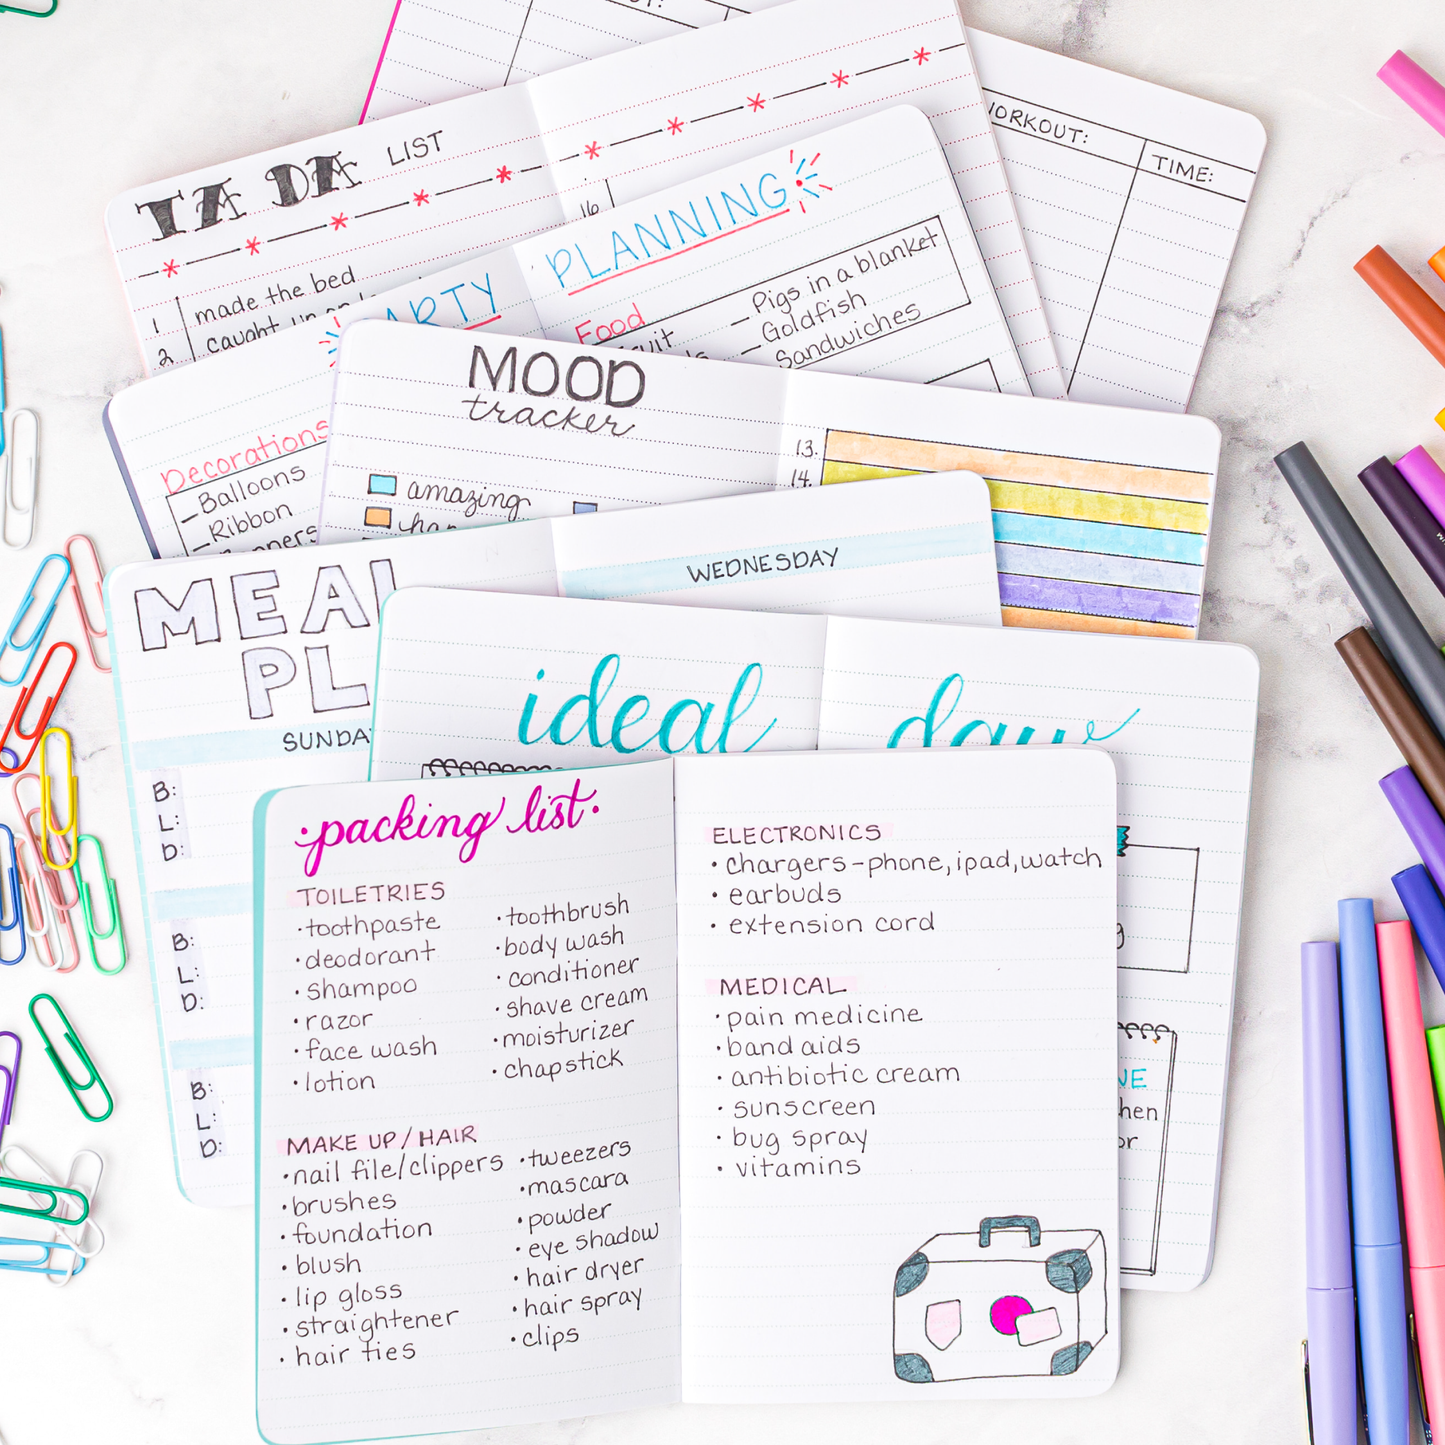 WORKOUT:
TIME:
TA DA LIST
1 made the bed
2 caught up on
16
PARTY PLANNING
Food
- Pigs in a blanket
- Goldfish
- Sandwiches
Decorations
- Balloons
- Ribbon
MOOD
tracker
amazing
13.
14.
MEAL
PL
WEDNESDAY
SUNDAY
B:
L:
D:
B:
L:
D:
B:
L:
D:
ideal day
hen
or
·packing list·
TOILETRIES
·toothpaste
·deodorant
·shampoo
·razor
·face wash
·lotion
·toothbrush
·body wash
·conditioner
·shave cream
·moisturizer
·chapstick
MAKE UP/HAIR
·nail file/clippers
·brushes
·foundation
·blush
·lip gloss
·straightener
·hair ties
·tweezers
·mascara
·powder
·eye shadow
·hair dryer
·hair spray
·clips
ELECTRONICS
·chargers-phone, ipad, watch
·earbuds
·extension cord
MEDICAL
·pain medicine
·band aids
·antibiotic cream
·sunscreen
·bug spray
·vitamins